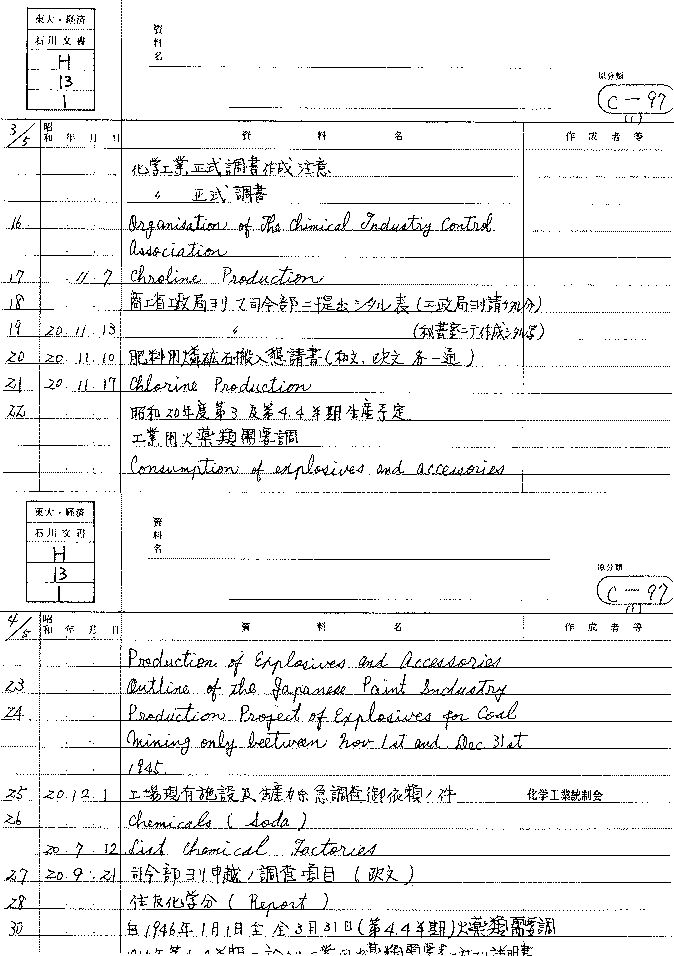 東大・経済
石川文書
H
13
1
資料名
原分類
C-97
(1)
3/5 昭和 年 月 日 資料名 作成者等
化学工業正式調書作成注意
〃 正式調書
16 Organisation of The Chimical Industry Control
Association
17 11 7 Chroline Production
18 商工省工政局ヨリ司令部ニ提出シタル表(工政局ヨリ請ケタル分)
19 20 11 13 〃 (秘書室ニテ作成シタル写)
20 20 11 10 肥料用燐鉱石搬入懇請書(和文、欧文各一通)
21 20 11 17 Chlorine Production
22 昭和20年度第3及第4.4半期生産予定
工業用火薬類需要調
Consumption of explosives and accessories
東大・経済
石川文書
H
13
1
資料名
原分類
C-97
(1)
4/5 昭和 年 月 日 資料名 作成者等
Production of Explosives and Accessories
23 Outline of the Japanese Paint Industry
24 Production Project of Explosives for Coal
Mining only beetween Nov 1st and Dec 31st
1945.
25 20.12.1 工場現有施設及生産力応急調査御依頼ノ件 化学工業統制会
26 Chemicals (Soda)
20 7 12 List Chemical Factories
27 20 9 21 司令部ヨリ申越ノ調査項目(欧文)
28 住友化学分(Report)
30 自1946年1月1日至仝3月31日(第4.4半期)火薬類需要調